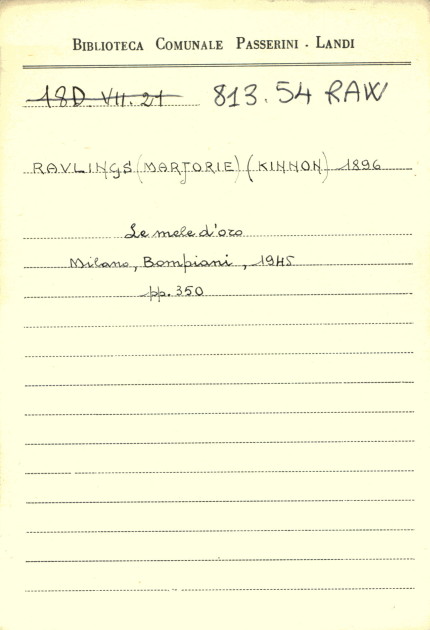 BIBLIOTECA COMUNALE PASSERINI - LANDI
18D. VII. 21 813.54 RAW
RAVLINGS (MARJORIE) (KINNON) 1896
Le mele d'oro
Milano, Bompiani, 1945
pp. 350